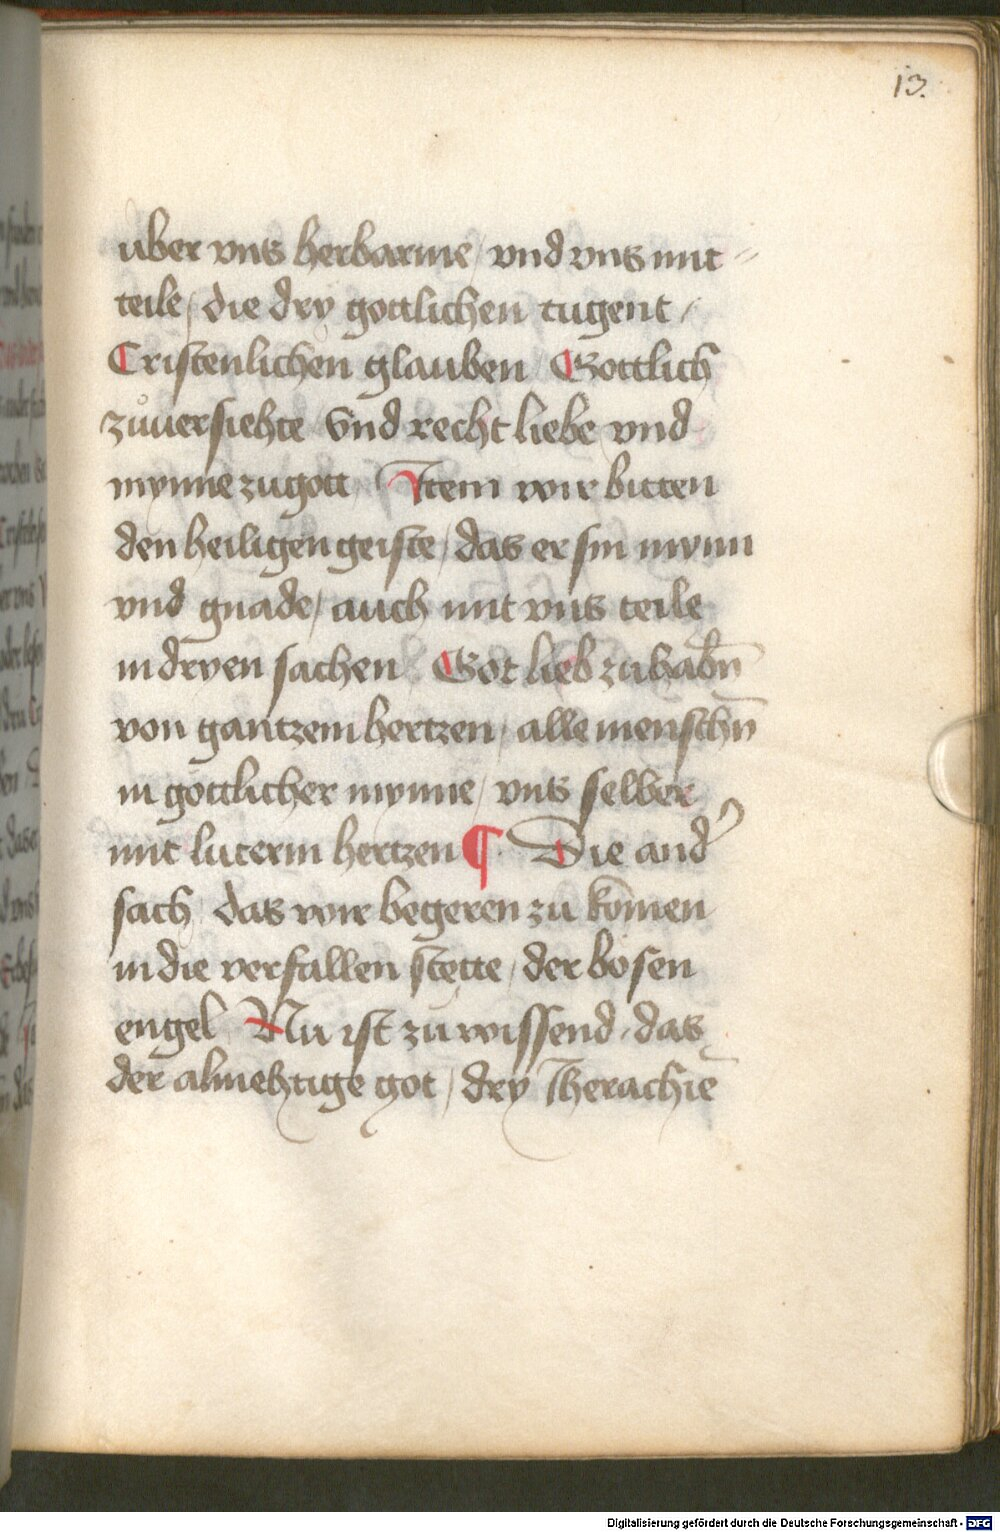 13.
uber vns herbarme / vnd vns mit =
teile / die dry gottlichen tugent /
Cristenlichen glauben / Gottlich
zůuersiehte / Vnd recht liebe vnd
mynne zu gott / Item wir bitten
den heiligen geiste / das er sin mynn
vnd gnade / auch mit vns teile
in dryen sachen / Got lieb zu habn̄
von gantzem hertzen / alle menschn̄
in gottlicher mynne / vns selber
mit luterm hertzen ¶ Die and̛
sach / das wir begeren zu kōmen
in die verfallen stette / der bosen
engel / Nu ist zu wissend / das
der almehtige got / dry Iherachie
Digitalisierung gefördert durch die Deutsche Forschungsgemeinschaft - DFG